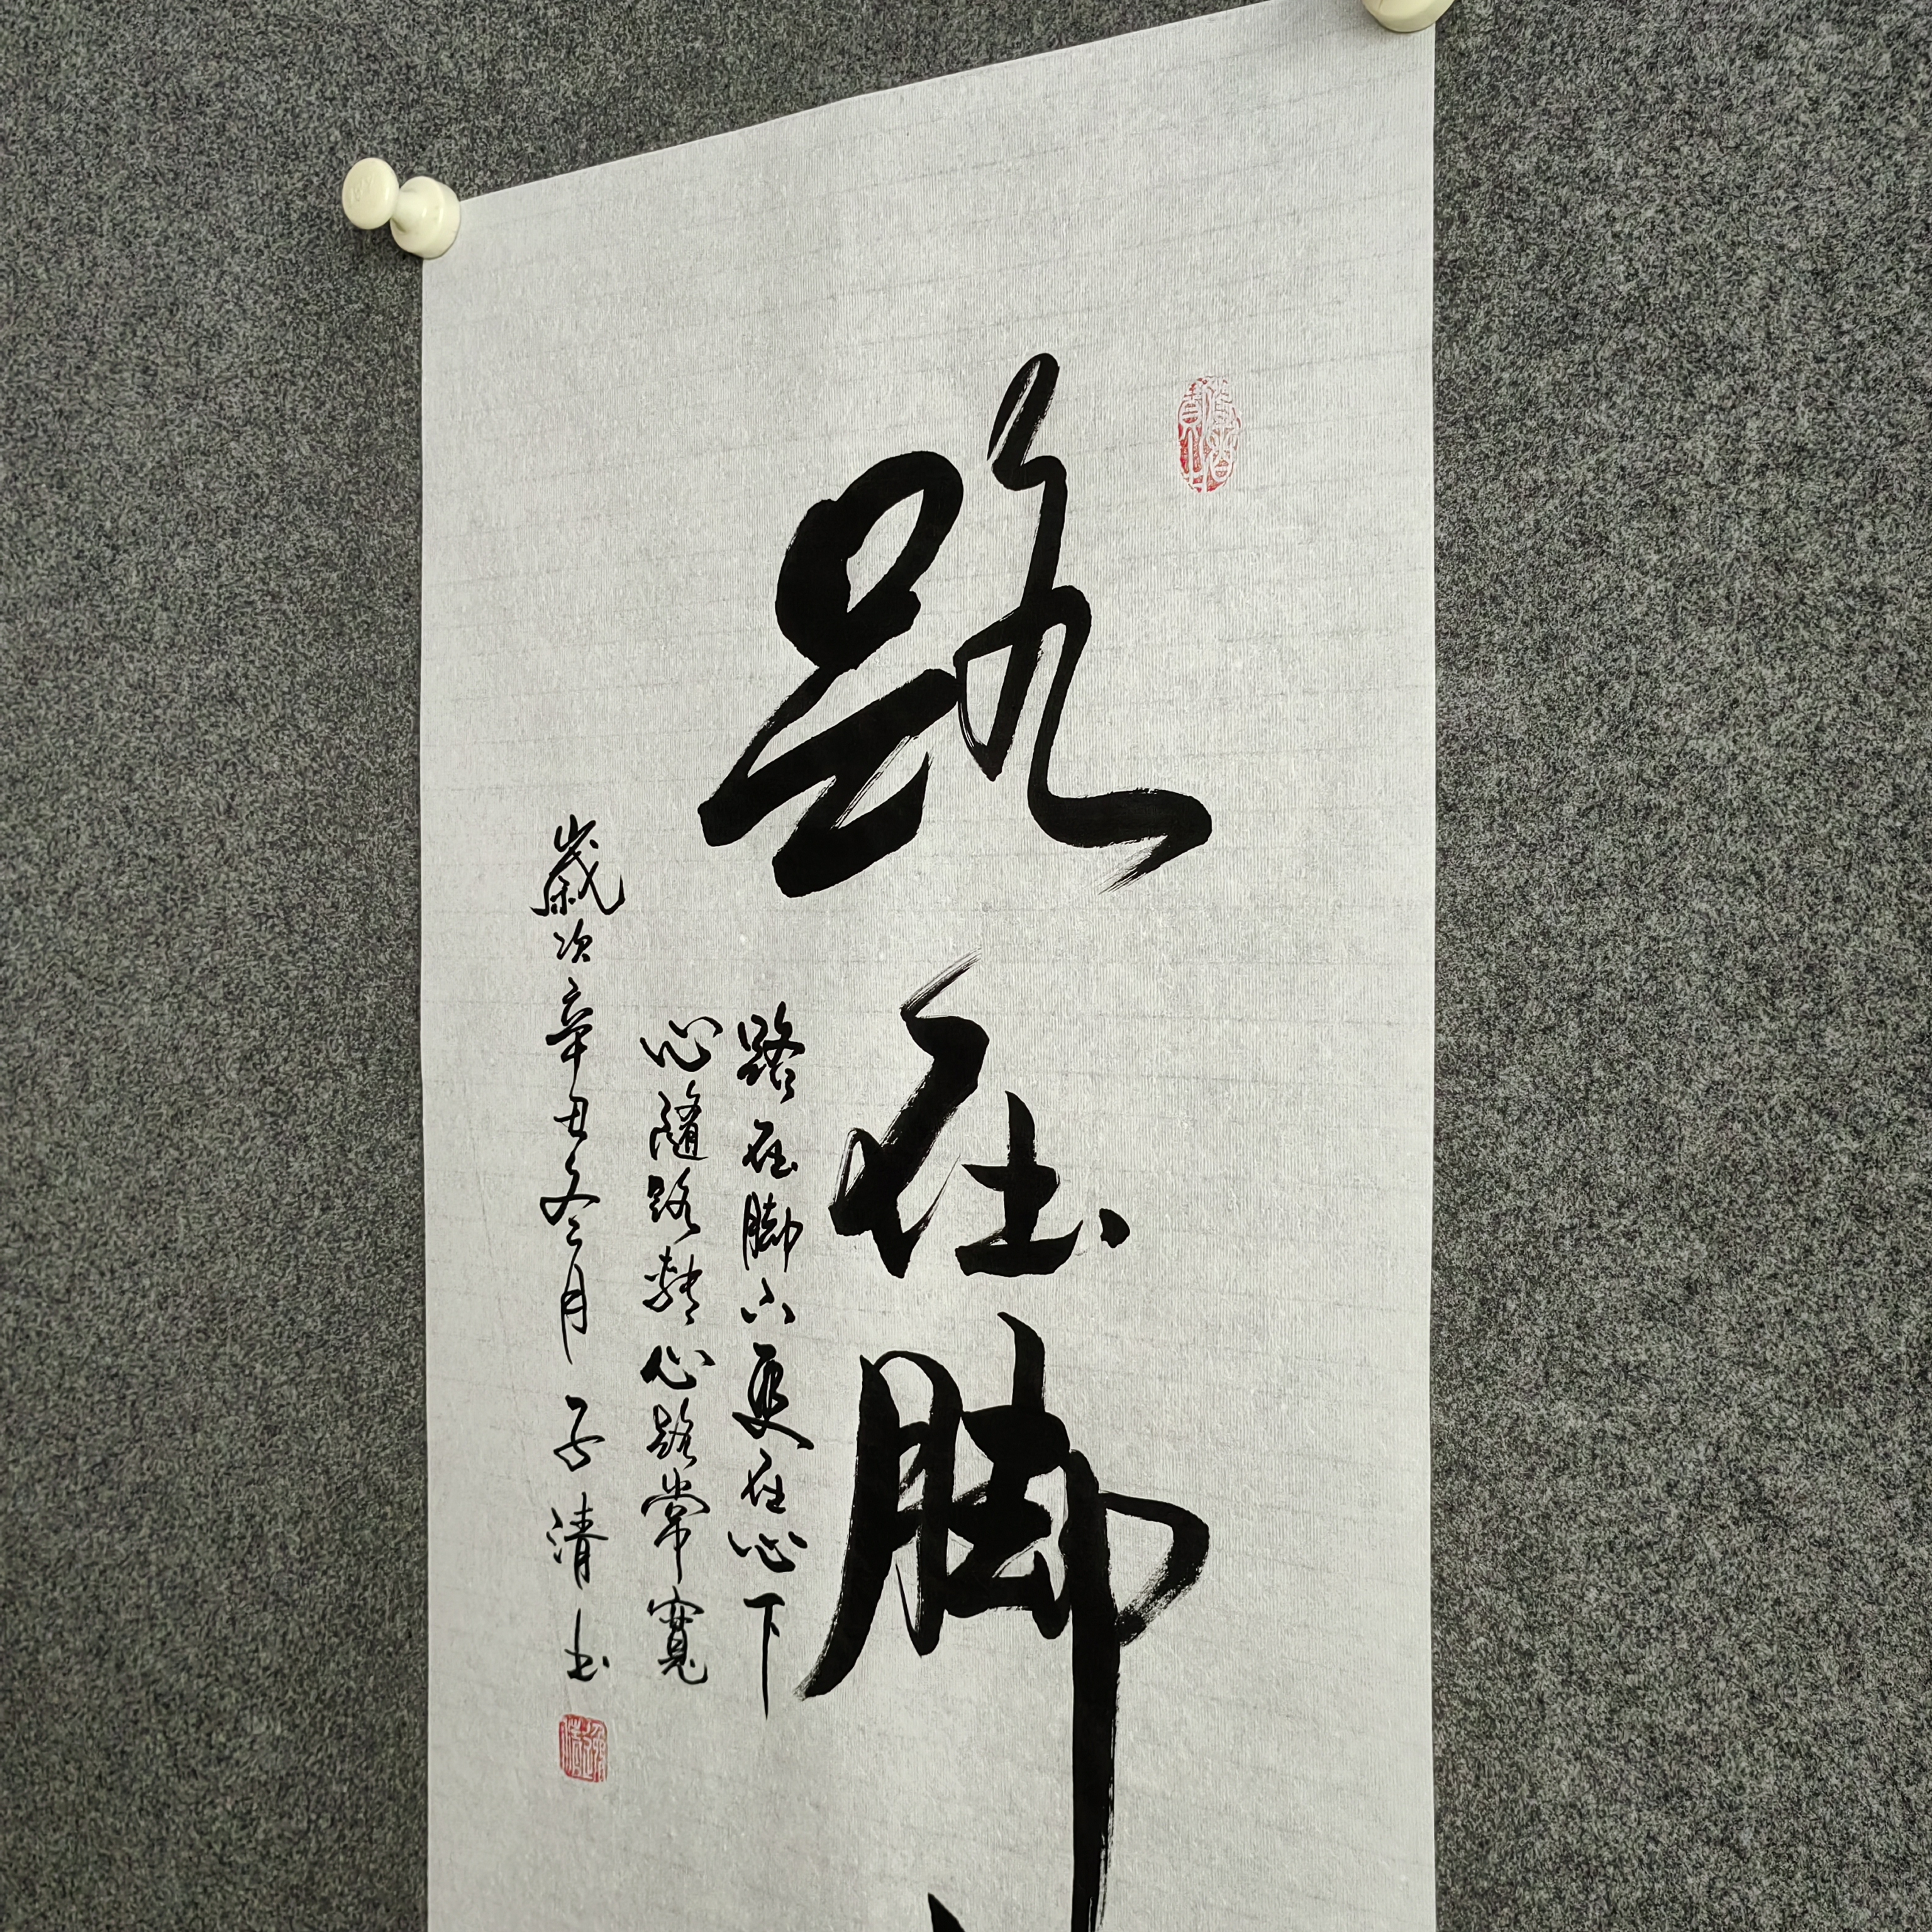 路在脚
路在脚下更在心下
心随路转心路常寬
歲次辛丑冬月子清书